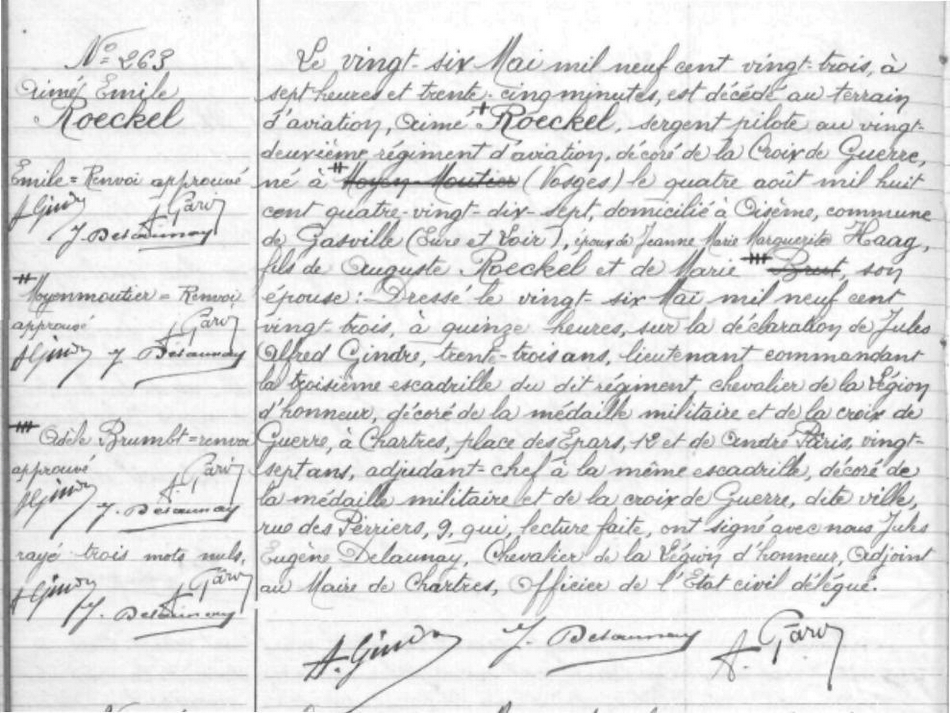 N° 263
Aimé Emile
Roeckel
Emile = Renvoi approuvé
A Gindre
A. Paris
J. Delaunay
# Moyenmoutier = Renvoi
approuvé
A. Paris
A Gindre J. Delaunay
## Odèle Brumbt = renvoi
approuvé
A. Paris
A Gindre J. Delaunay
rayé trois mots nuls,
A Gindre A. Paris
J. Delaunay
Le vingt-six Mai mil neuf cent vingt-trois, à
sept heures et trente-cinq minutes, est décédé au terrain
d'aviation, Aimé + Roeckel, sergent pilote au vingt-
deuxième régiment d'aviation, décoré de la Croix de Guerre,
né à # Moyen-Moutier (Vosges) le quatre août mil huit
cent quatre-vingt-dix-sept, domicilié à Oisème, commune
de Gasville (Eure et Loir), époux de Jeanne Marie Marguerite Haag,
fils de Auguste Roeckel et de Marie ## Brut, son
épouse : Dressé le vingt-six Mai mil neuf cent
vingt trois, à quinze heures, sur la déclaration de Jules
Alfred Gindre, trente-trois ans, lieutenant commandant
la troisième escadrille du dit régiment chevalier de la Légion
d'honneur, décoré de la médaille militaire et de la croix de
Guerre, à Chartres, place des Epars, 12 et de André Paris, vingt-
sept ans, adjudant-chef à la même escadrille, décoré de
la médaille militaire et de la croix de Guerre, dite ville,
rue des Perriers, 9, qui, lecture faite, ont signé avec nous Jules
Eugène Delaunay, Chevalier de la Légion d'honneur, Adjoint
au Maire de Chartres, Officier de l'Etat civil délégué.
A. Gindre J. Delaunay A. Paris